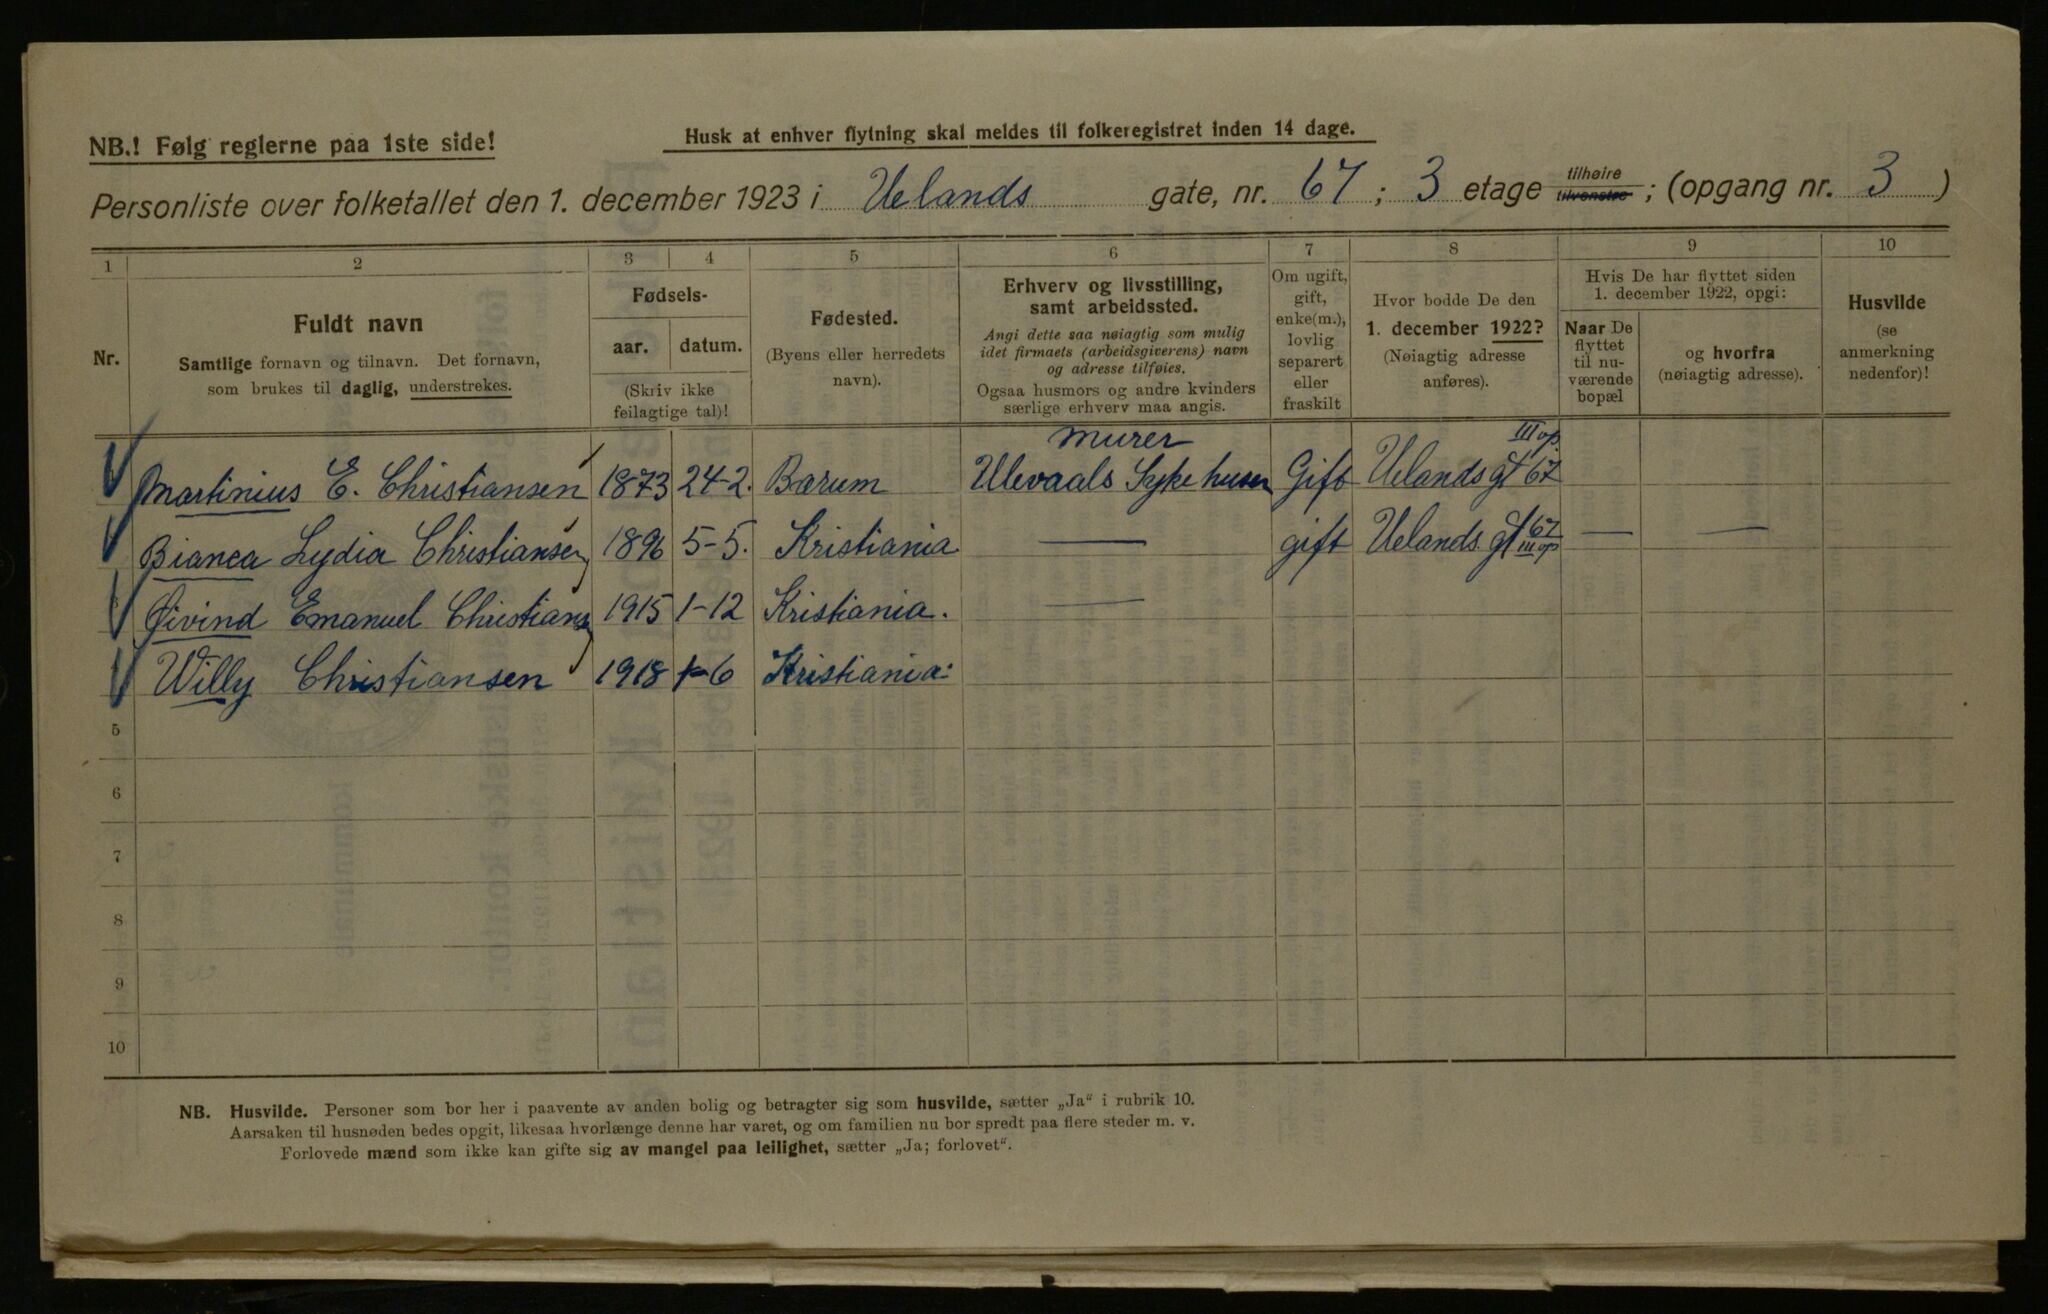 NB.! Følg reglerne paa 1ste side!
Husk at enhver flytning skal meldes til folkeregistret inden 14 dage.
Personliste over folketallet den 1. december 1923 i Uelands gate, nr. 67; 3 etage tilhøire tilvenstre; (opgang nr. 3)
1 2 3 4 5 6 7 8 9 10
Nr.
Fuldt navn
Samtlige fornavn og tilnavn. Det fornavn,
som brukes til daglig, understrekes.
Fødsels-
aar. datum.
(Skriv ikke
feilagtige tal)!
Fødested.
(Byens eller herredets
navn).
Erhverv og livsstilling,
samt arbeidssted.
Angi dette saa nøiagtig som mulig
idet firmaets (arbeidsgiverens) navn
og adresse tilføies.
Ogsaa husmors og andre kvinders
særlige erhverv maa angis.
Om ugift,
gift,
enke(m.),
lovlig
separert
eller
fraskilt
Hvor bodde De den
1. december 1922?
(Nøiagtig adresse
anføres).
Hvis De har flyttet siden
1. december 1922, opgi:
Naar De
flyttet
til nu-
værende
bopæl
og hvorfra
(nøiagtig adresse).
Husvilde
(se
anmerkning
nedenfor)!
murer III op.
Martinius E. Christiansen 1873 24-2. Bærum Ulevaals Sykehuser Gift Uelands gt 67
Bianca Lydia Christiansen 1896 5-5. Kristiania — gift Uelands gt 67 III op — —
Øivind Emanuel Christians 1915 1-12 Kristiania. —
Willy Christiansen 1918 1-6 Kristiania.
5
6
7
8
9
10
NB. Husvilde. Personer som bor her i paavente av anden bolig og betragter sig som husvilde, sætter „Ja“ i rubrik 10.
Aarsaken til husnøden bedes opgit, likesaa hvorlænge denne har varet, og om familien nu bor spredt paa flere steder m. v.
Forlovede mænd som ikke kan gifte sig av mangel paa leilighet, sætter „Ja; forlovet“.